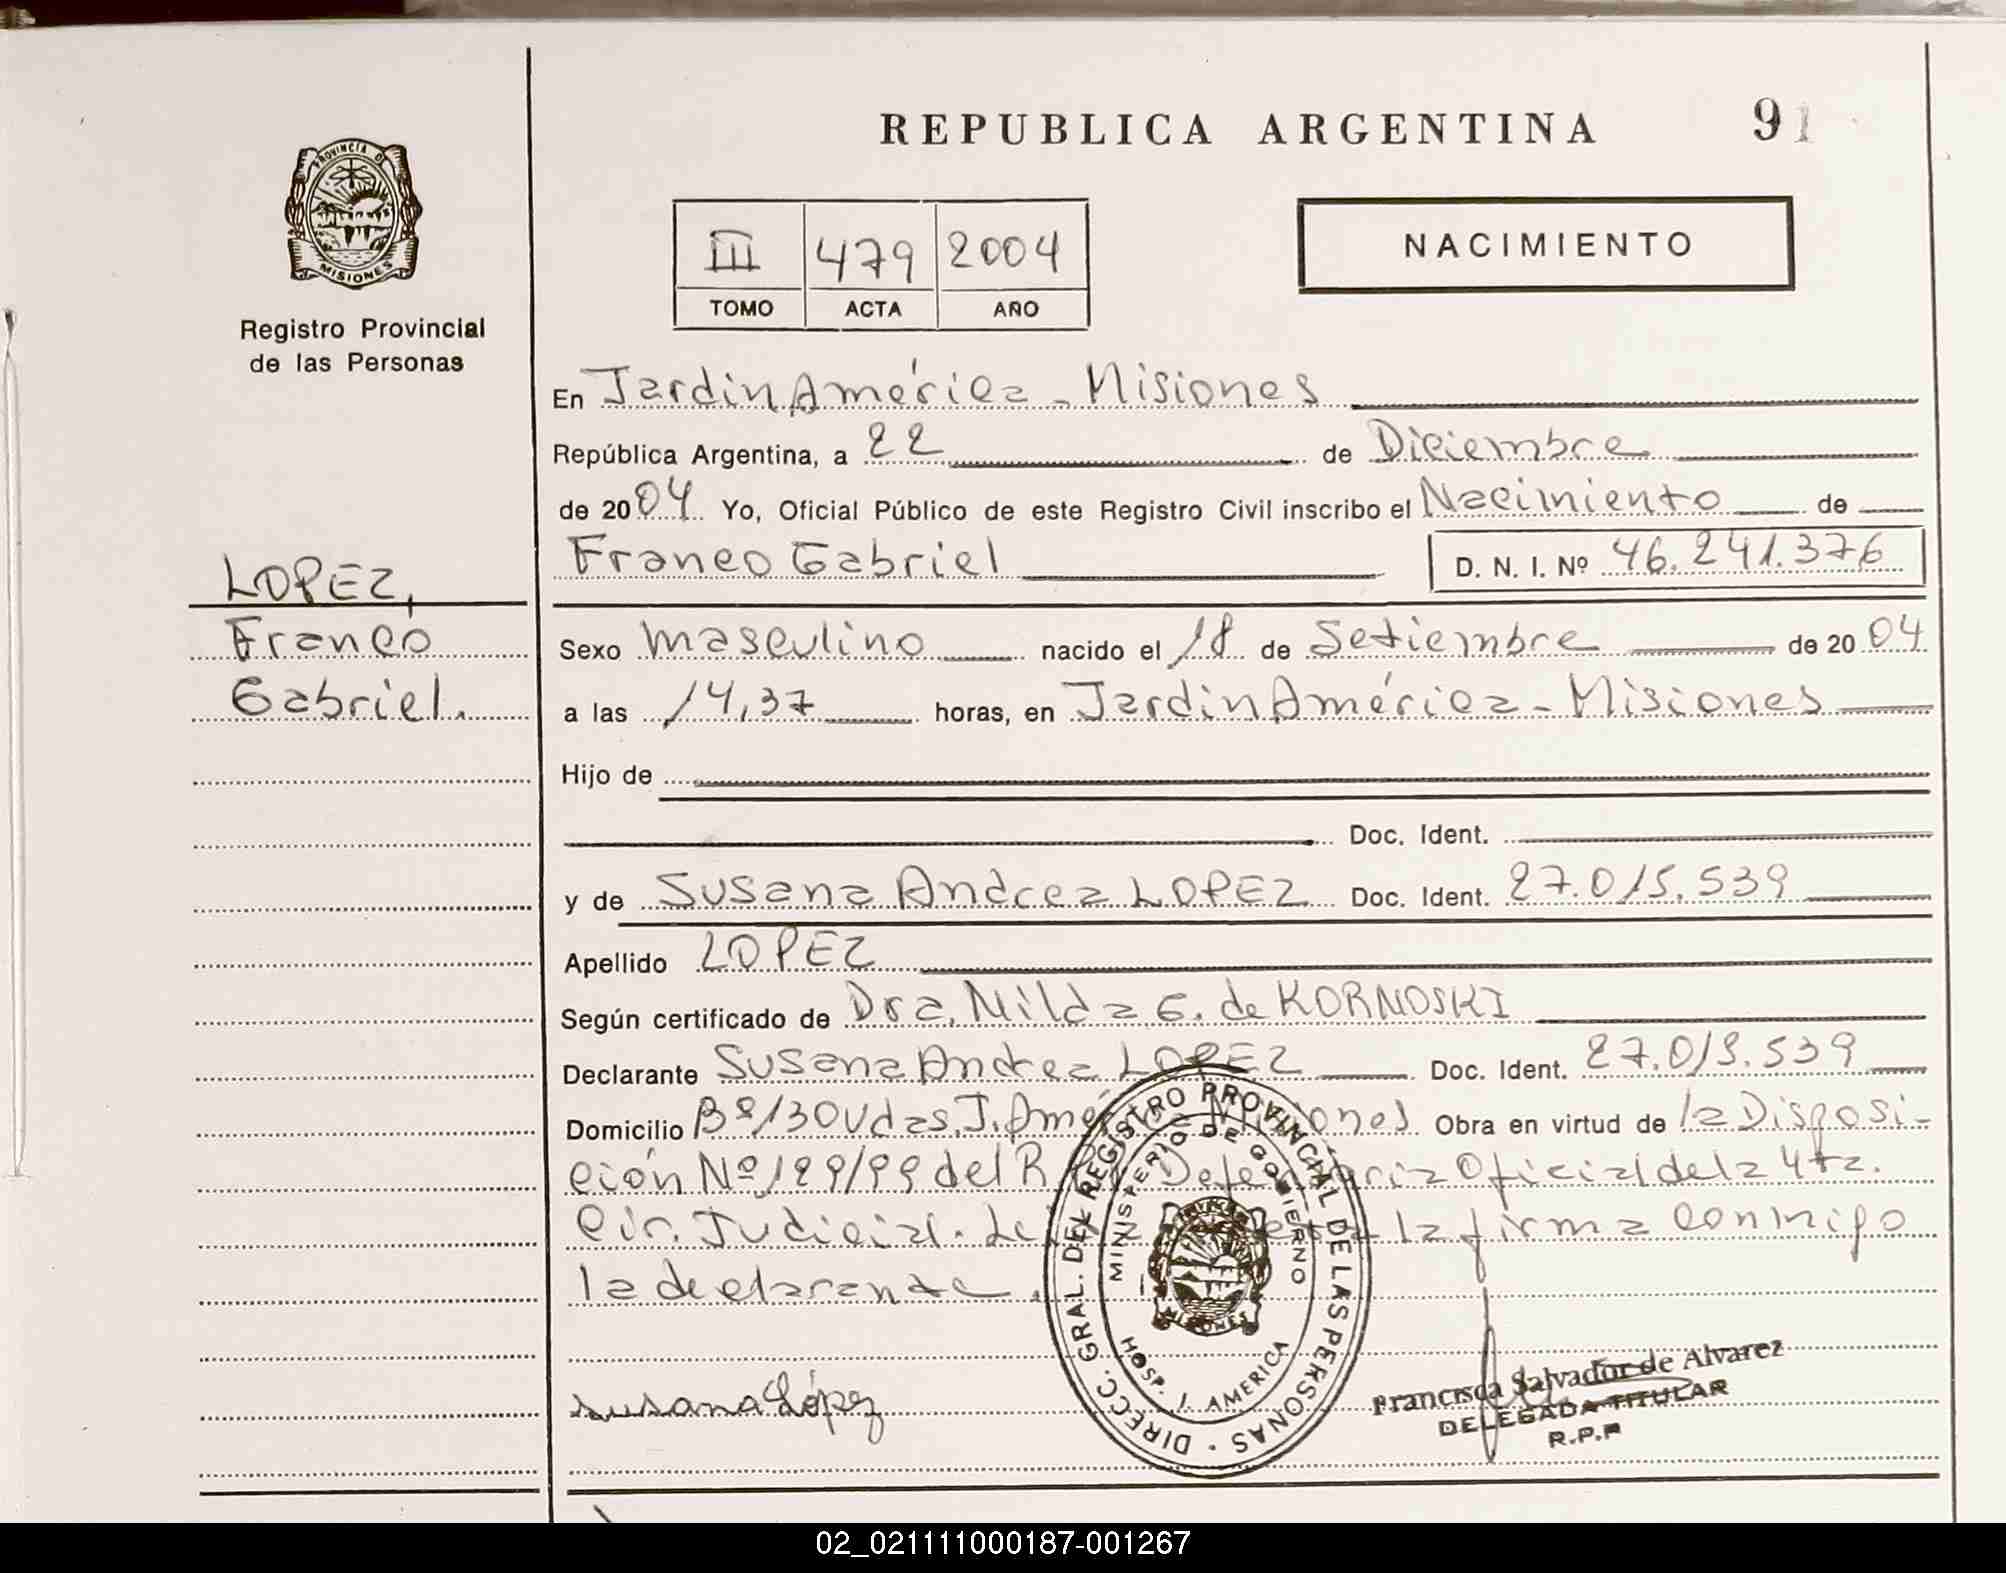 REPUBLICA ARGENTINA 91
PROVINCIA DE
MISIONES
Registro Provincial
de las Personas
III 479 2004
TOMO ACTA AÑO
NACIMIENTO
En Jardin América - Misiones
República Argentina, a 22 de Diciembre
de 2004 Yo, Oficial Público de este Registro Civil inscribo el Nacimiento de
Franco Gabriel D. N. I. Nº 46.241.376
LOPEZ,
Franco
Gabriel.
Sexo masculino nacido el 18 de Setiembre de 2004
a las 14,37 horas, en Jardin América - Misiones
Hijo de
Doc. Ident.
y de Susana Andrea LOPEZ Doc. Ident. 27.015.539
Apellido LOPEZ
Según certificado de Dra. Nilda G. de KORNOSKI
Declarante Susana Andrea LOPEZ Doc. Ident. 27.015.539
Domicilio Bº 130 Vdas. J. Amé Misiones Obra en virtud de la Disposi-
ción Nº 199/99 del R. Oficial de la 4ta.
Cir. Judicial. la firma conmigo
la declarante.
DIRECC. GRAL. DEL REGISTRO PROVINCIAL DE LAS PERSONAS
MINISTERIO DE GOBIERNO
MISIONES
HOSP. J. AMERICA
Susana López
Francisca Salvador de Alvarez
DELEGADA TITULAR
R.P.P
02_021111000187-001267